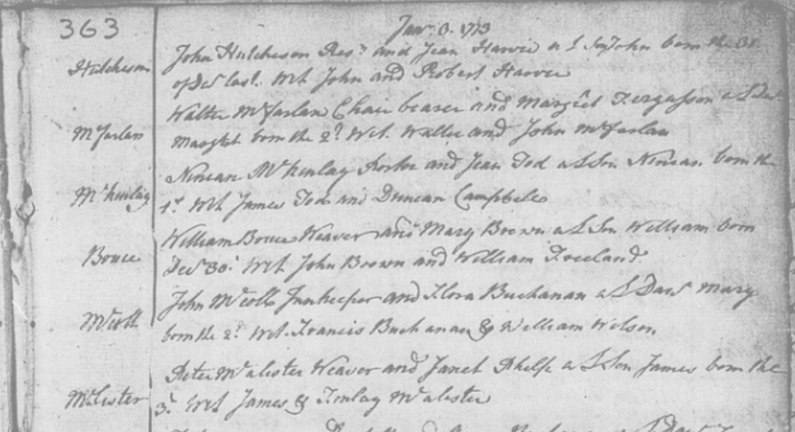 363
Janr. 3. 1773
Hutcheson John Hutcheson and Jean Harvie a L Son John born the 31
of Decr last. Wit John and Robert Harvie
McFarlan Walter McFarlan Chair bearer and Margret Fergusson a L Dar
Margret born the 2d. Wit. Walter and John McFarlan
McKinlay Ninian McKinlay Porter and Jean Tod a L Son Ninian born the
1st Wit James Tod and Duncan Campbell
Bouce William Bouce Weaver and Mary Brown a L Son William born
Decr 30. Wit John Brown and William Freeland.
McColl John McColl Innkeeper and Flora Buchanan a L Daur Mary
born the 2d. Wit. Francis Buchanan & William Wilson
McLister Peter McAlister Weaver and Janet a L Son James born the
3d. Wit James & Finlay McAlister